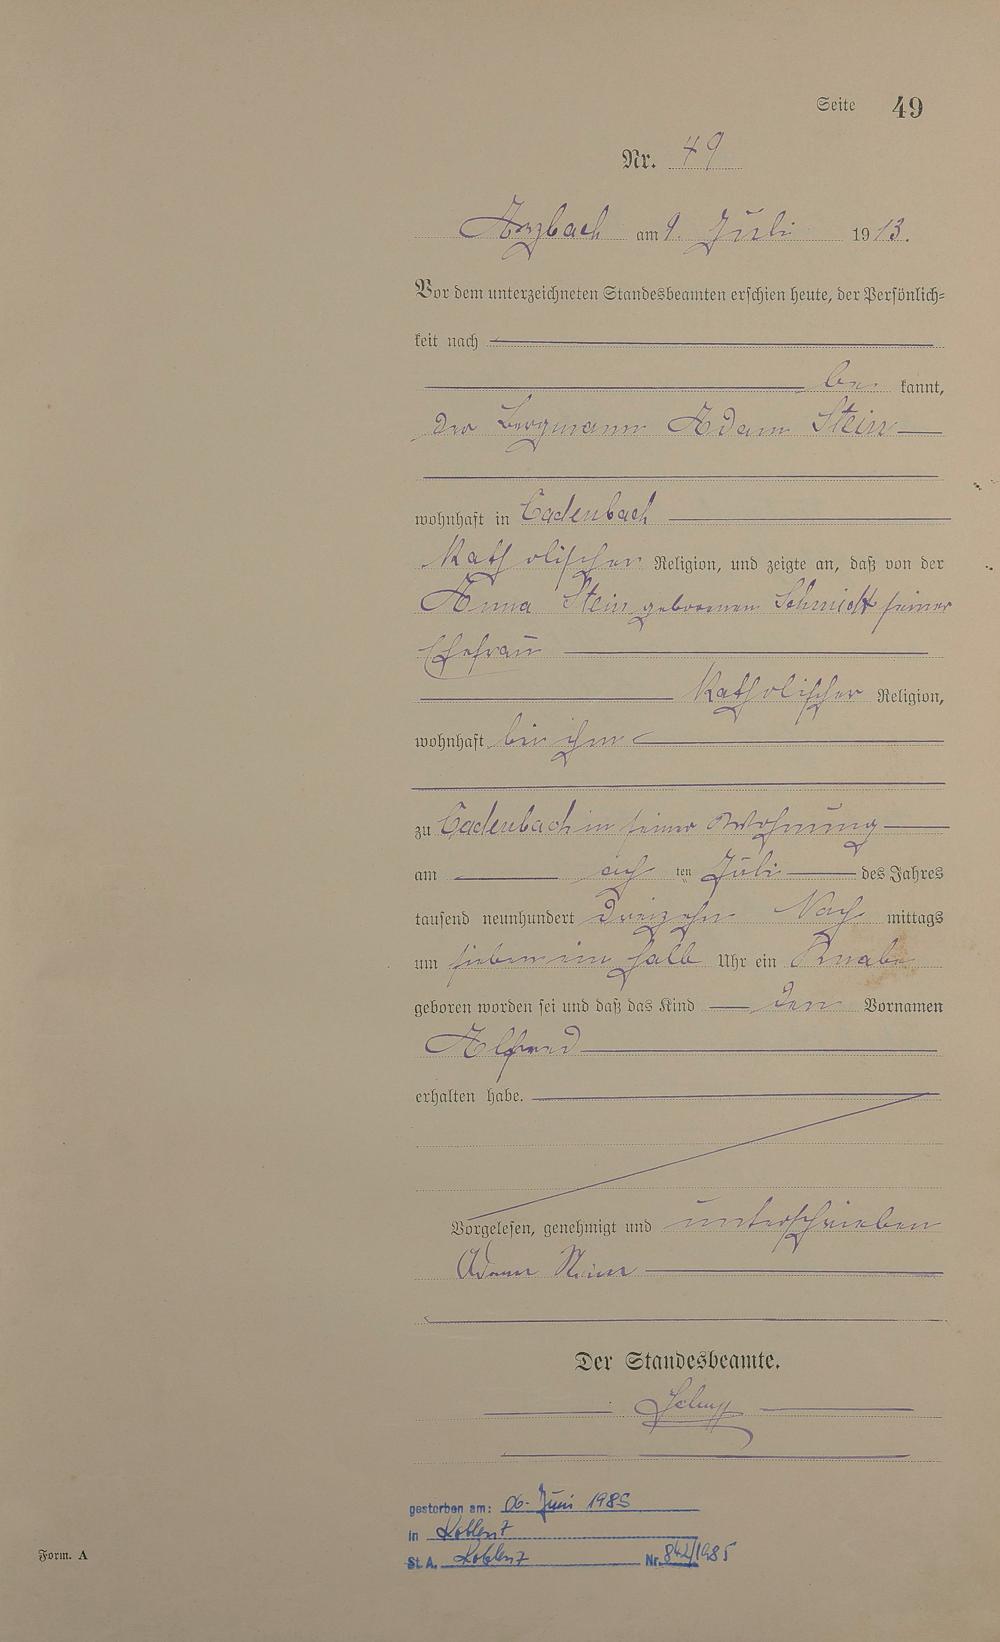 Seite 49
Nr. 49
Arzbach am 9. Juli 1913.
Vor dem unterzeichneten Standesbeamten erschien heute, der Persönlich-
keit nach
be kannt,
der Bergmann Adam Stein
wohnhaft in Cadenbach
Katholischer Religion, und zeigte an, daß von der
Anna Stein geborenen Schmidt seiner
Ehefrau
Katholischer Religion,
wohnhaft bei ihm
zu Cadenbach in seiner Wohnung
am ach ten Juli des Jahres
tausend neunhundert dreizehn Nach mittags
um sieben ein halb Uhr ein Knabe
geboren worden sei und daß das Kind den Vornamen
Alfred
erhalten habe.
Vorgelesen, genehmigt und unterschrieben
Adam Stein
Der Standesbeamte.
gestorben am: 06. Juni 1985
in Koblenz
St. A. Koblenz Nr. 842/1985
Form. A